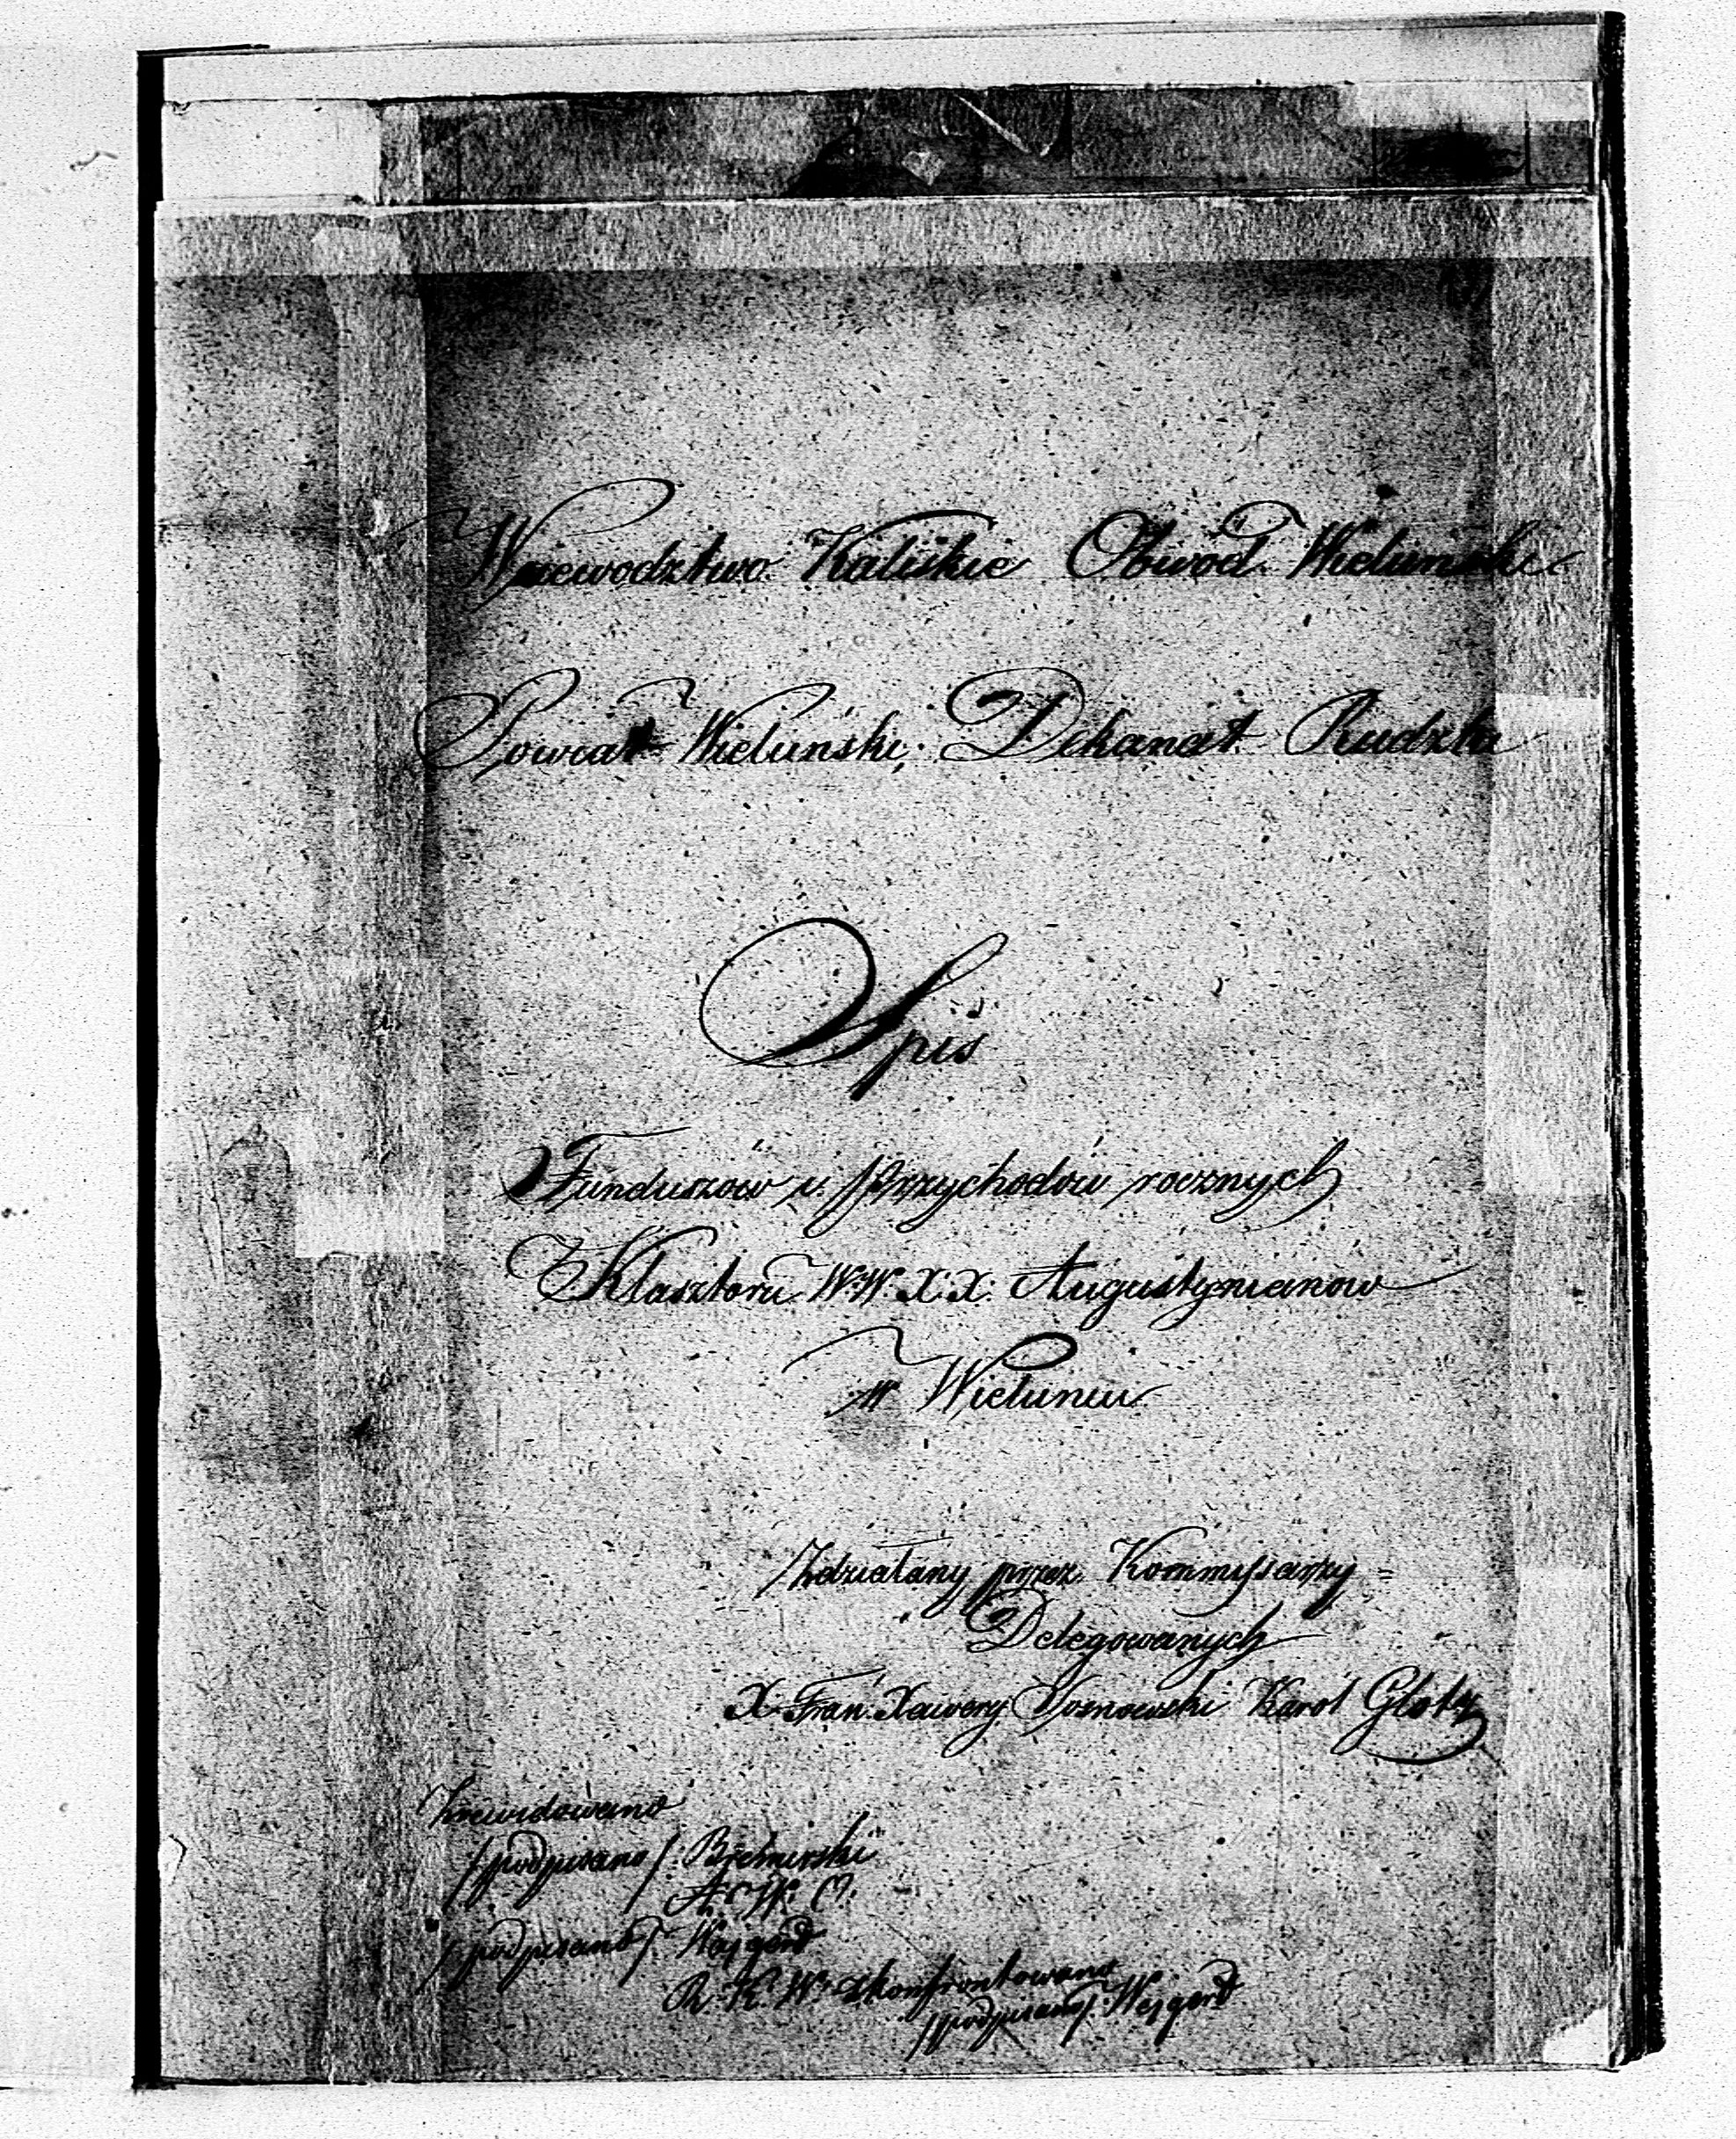 Wojewodztwo Kaliskie Obwod Wieluński
Powiat Wieluński; Dekanat Rudzki
Spis
Funduszów i Przychodów rocznych
Klasztoru W.W. X.X. Augustynianow
w Wieluniu
Zdziałany przez Kommyssarzy =
Delegowanych
X. Fran. Xawery Karol Glotz
Zrewidowano
/podpisano/
/podpisano/. Wejgerd
R. K. W. zkonfrontowano
/podpisano/. Wejgerd